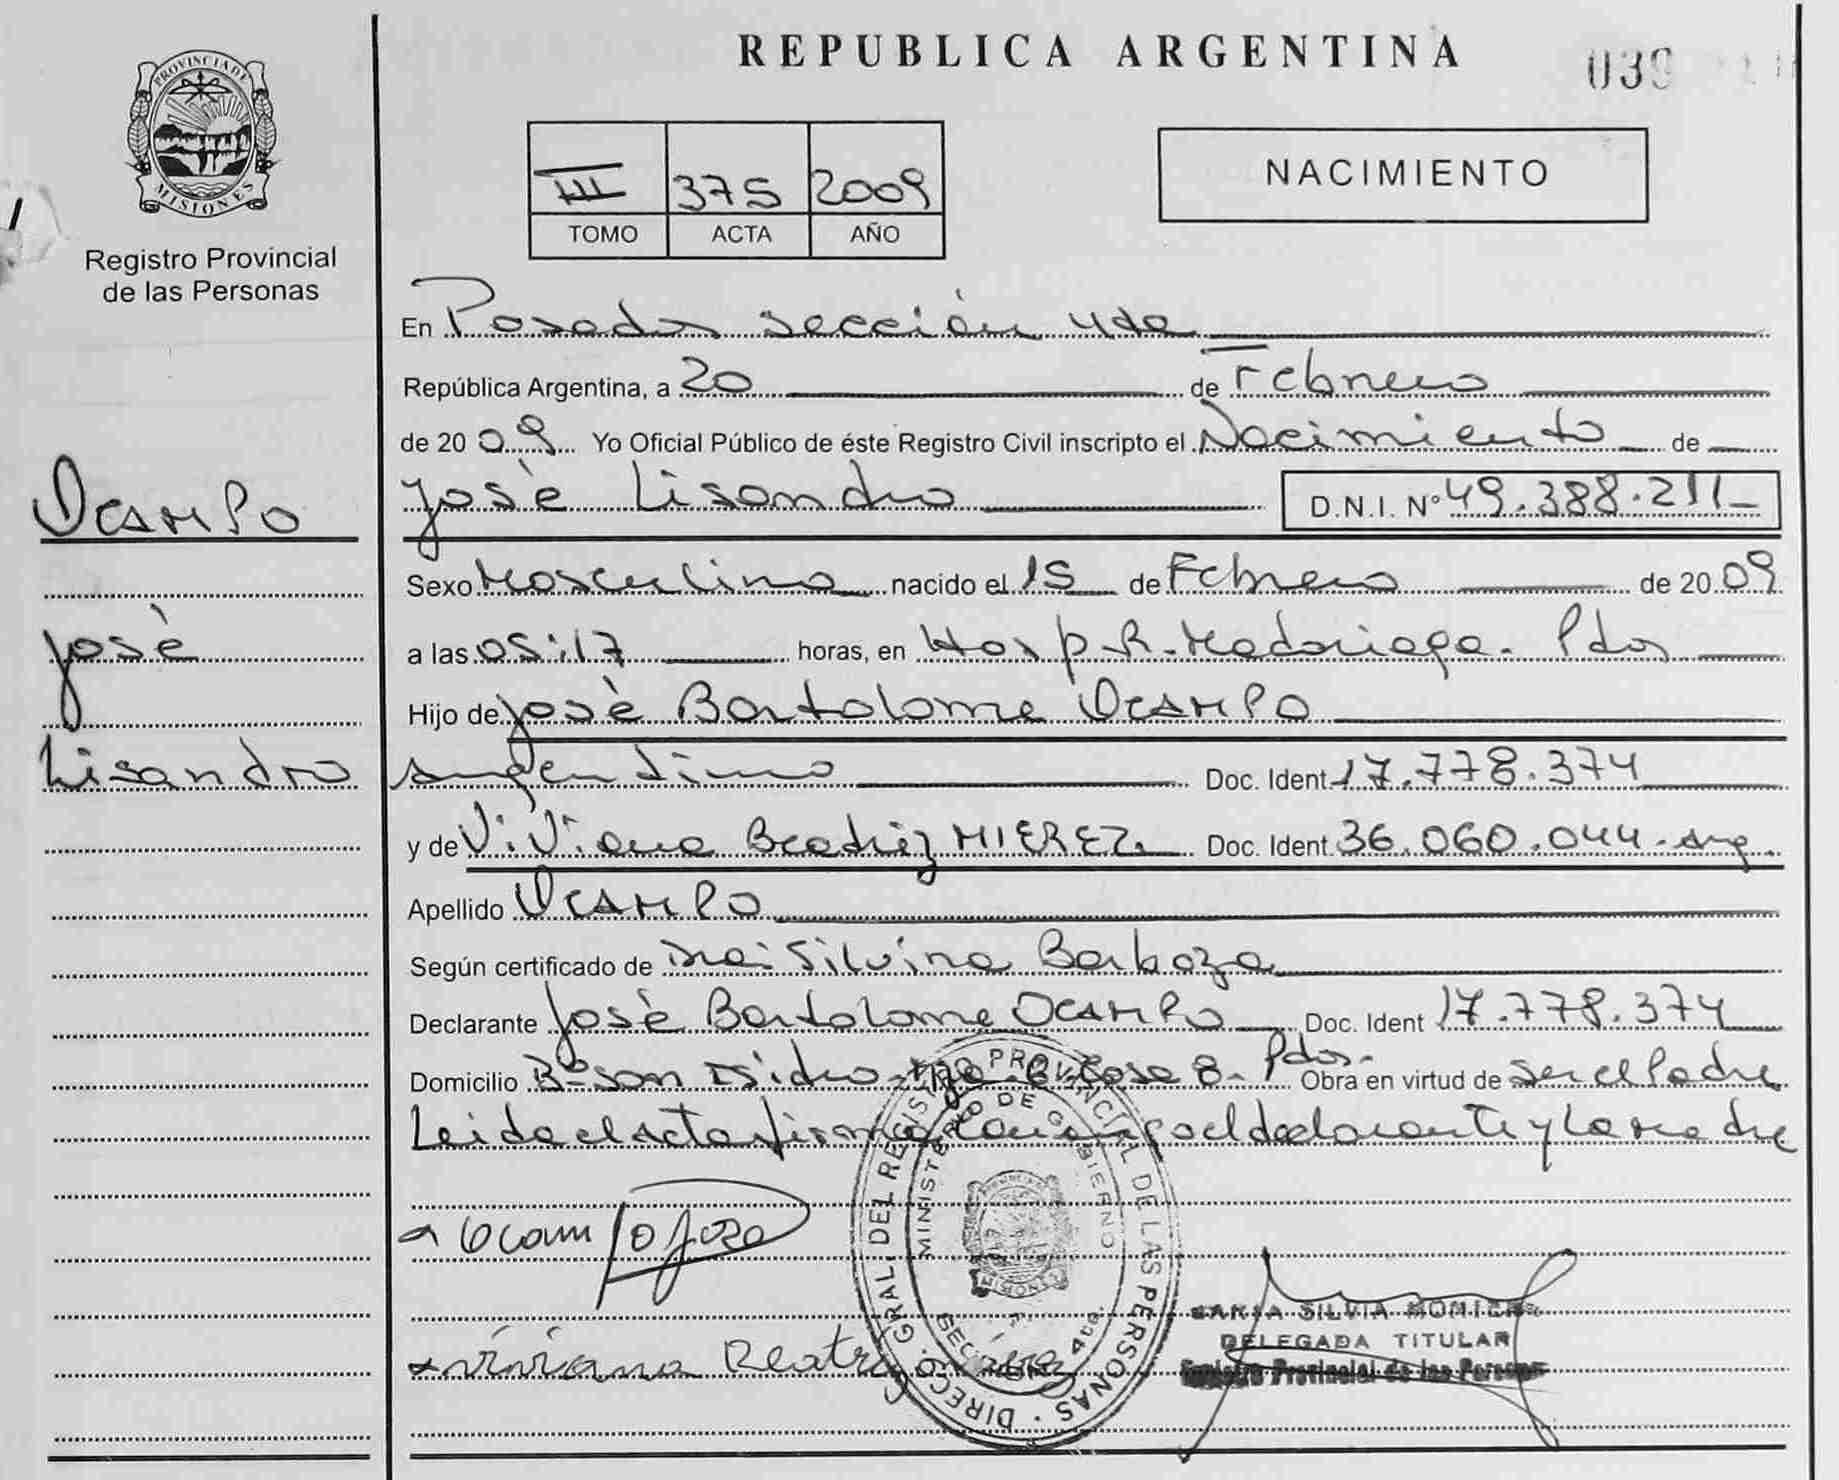 REPUBLICA ARGENTINA
039
PROVINCIA DE MISIONES
Registro Provincial
de las Personas
III 375 2009
TOMO ACTA AÑO
NACIMIENTO
En Posadas sección 4ta
República Argentina, a 20 de Febrero
de 2009 Yo Oficial Público de éste Registro Civil inscripto el Nacimiento de
José Lisandro D.N.I. Nº 49.388.211
Ocampo
José
Lisandro
Sexo Masculino nacido el 15 de Febrero de 2009
a las 05:17 horas, en Hosp. R. Madariaga. Pdas
Hijo de José Bartolome Ocampo
Argentino Doc. Ident. 17.778.374
y de Viviana Beatriz MIEREZ Doc. Ident. 36.060.044. Arg.
Apellido Ocampo
Según certificado de Silvina Barboza
Declarante José Bartolome Ocampo Doc. Ident 17.778.374
Domicilio Bº San Isidro Casa 8. Pdas. Obra en virtud de ser el Padre
Leida el acta firman conmigo el declarante y la madre
Ocampo Jose
Viviana Beatriz
DIRECC. GRAL. DEL REGISTRO PROVINCIAL DE LAS PERSONAS
MINISTERIO DE GOBIERNO
SILVIA MONICA
DELEGADA TITULAR
Registro Provincial de las Personas